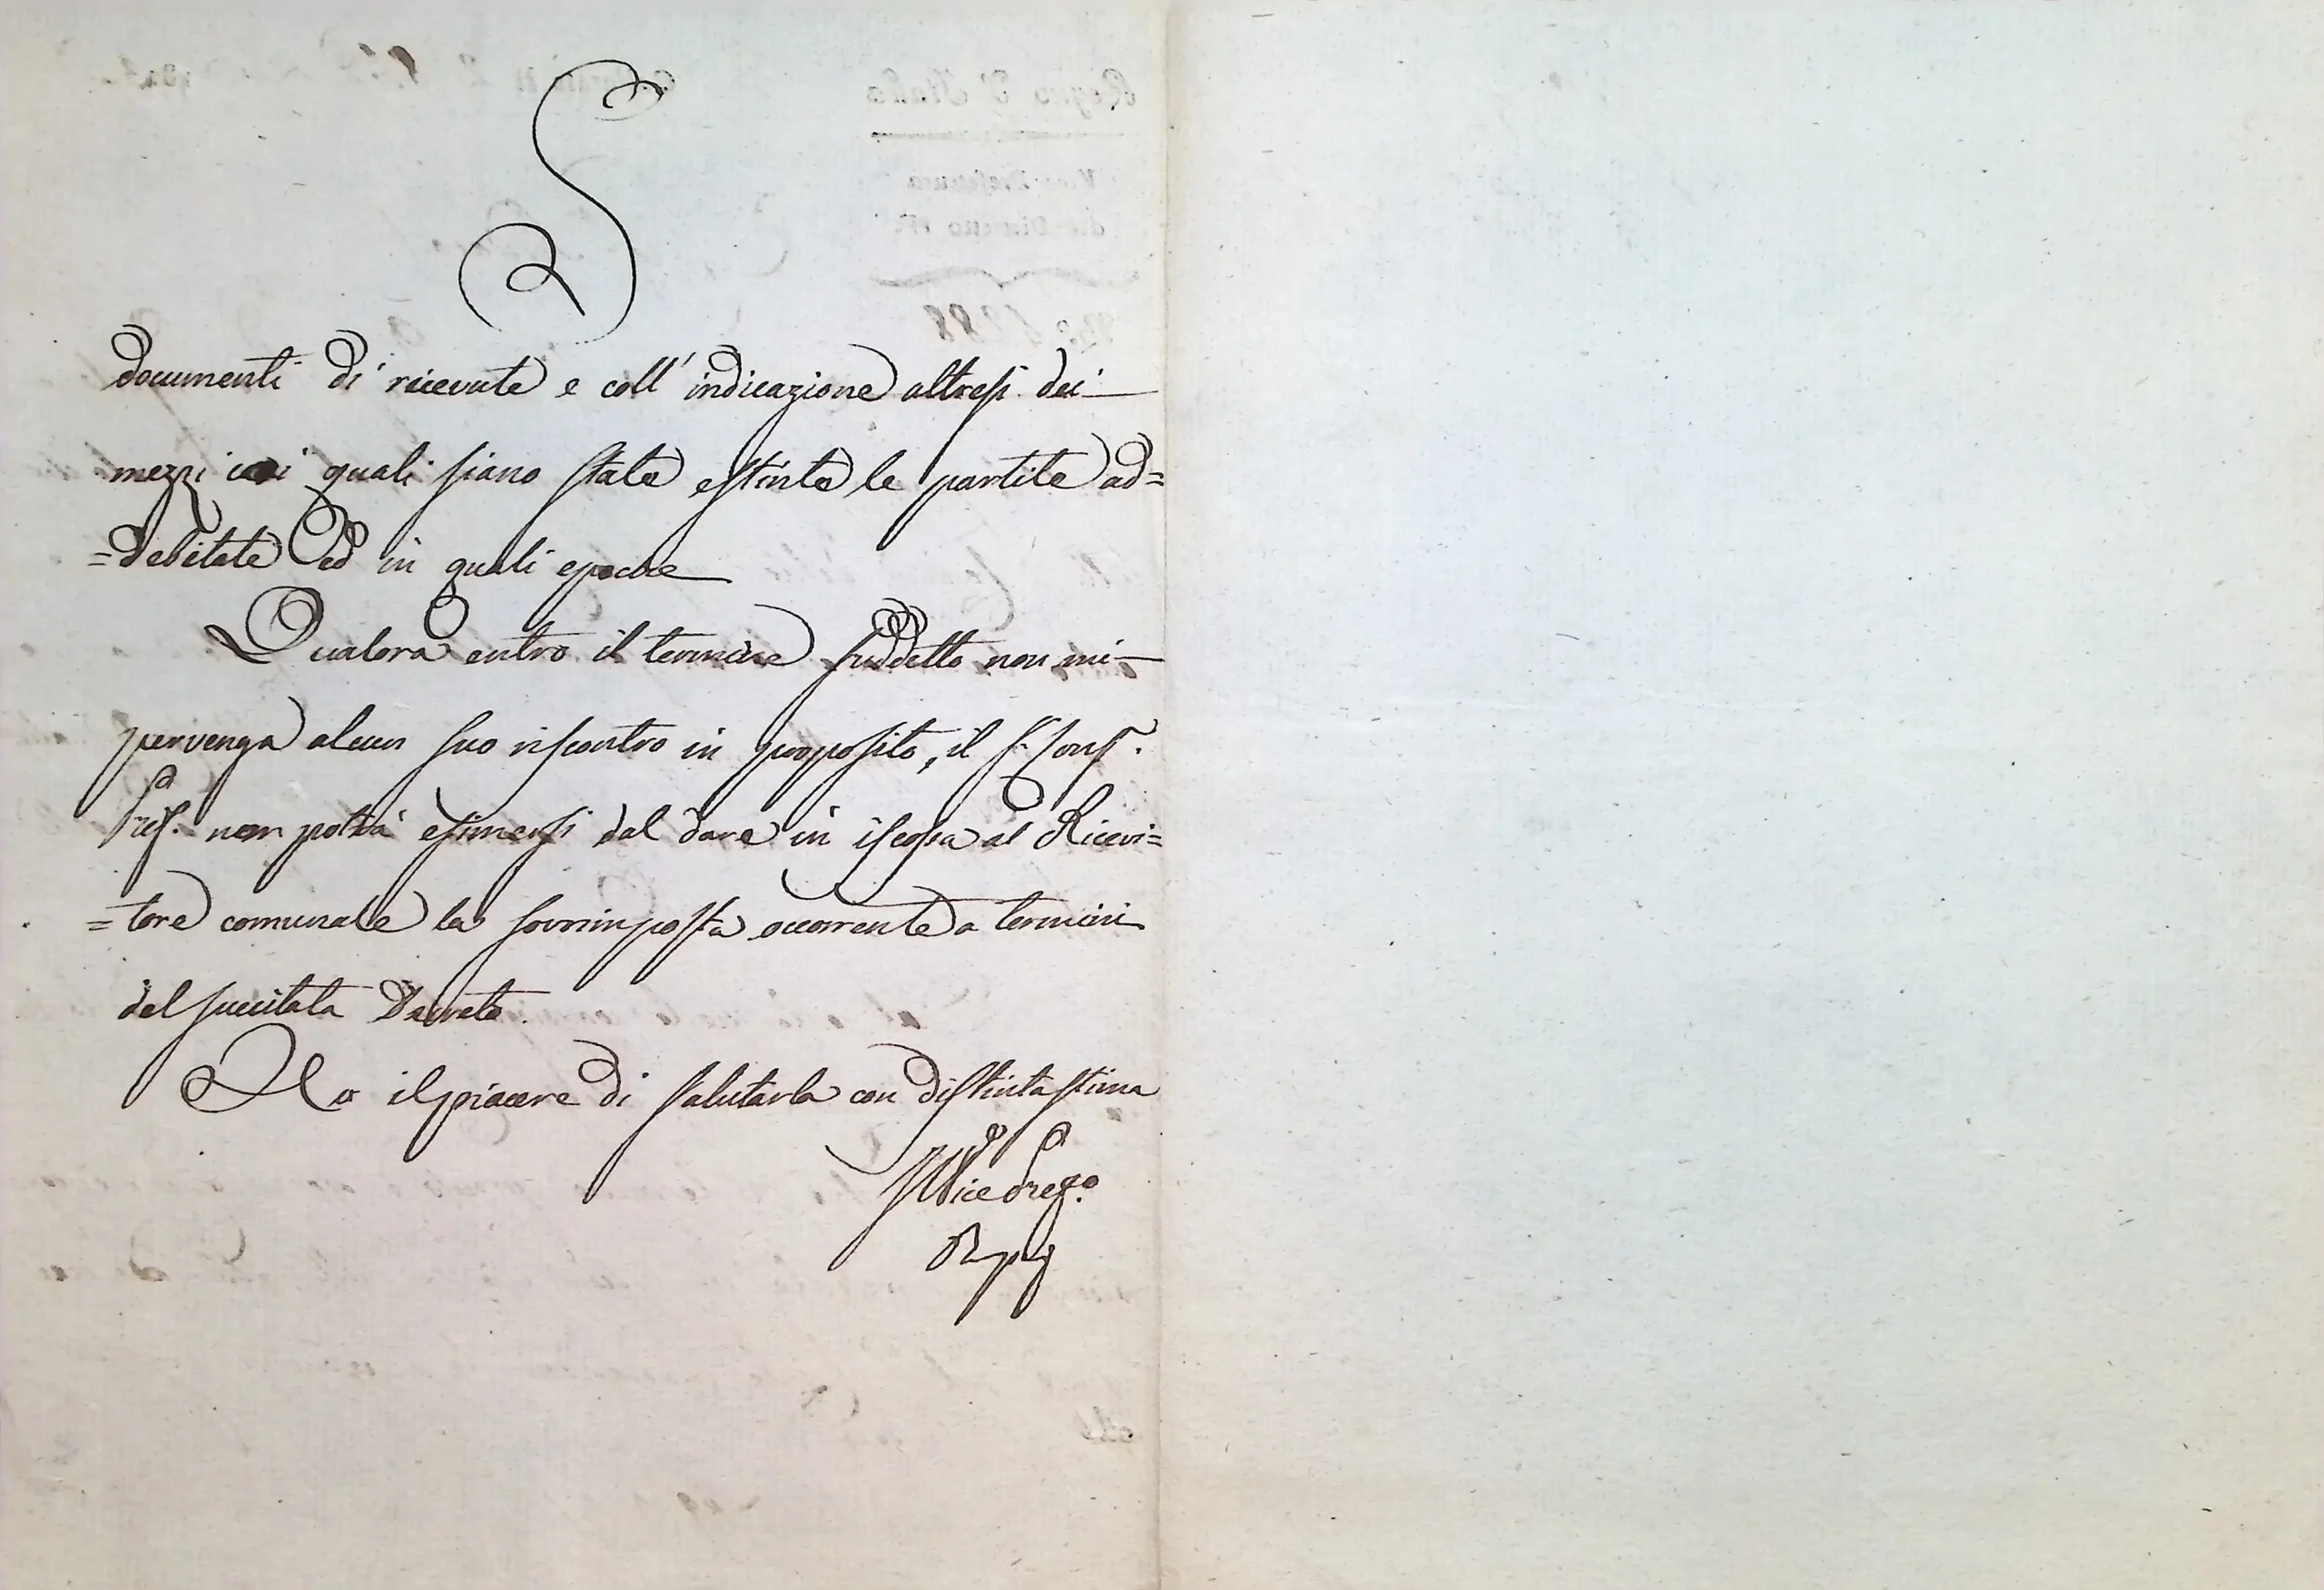 documenti di ricevute e coll' indicazione altresì dei
mezzi coi quali siano state estinte le partite ad=
=debitate ed in quali epoche
Qualora entro il termine suddetto non mi
pervenga alcun suo riscontro in proposito, il S.r Cons.r
Pref. non potrà esimersi dal dare in iscossa al Ricevi=
=tore comunale la sovrimposta occorrente a termini
del succitato Decreto.
Ho il piacere di salutarla con distinta stima
Il Vice Pref.o